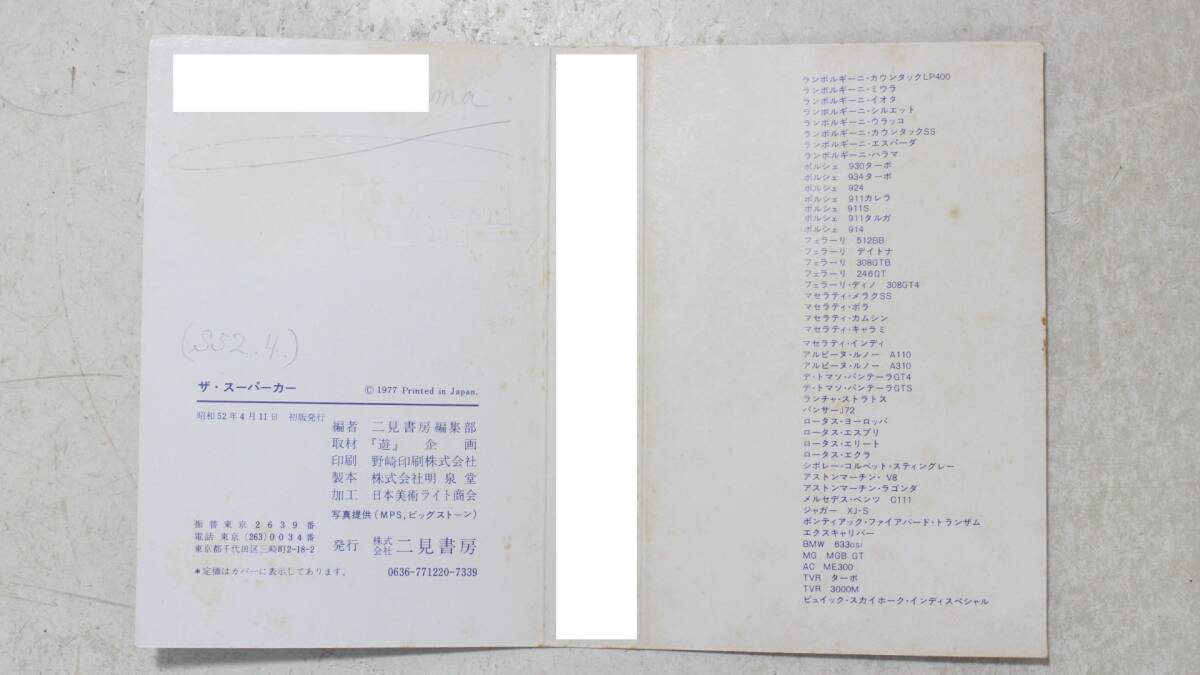 ma
(S52.4.)
ザ・スーパーカー
© 1977 Printed in Japan.
昭和52年4月11日 初版発行
編者 二見書房編集部
取材 『遊』企画
印刷 野崎印刷株式会社
製本 株式会社明泉堂
加工 日本美術ライト商会
写真提供(MPS,ビッグストーン)
振替東京2639番
電話 東京(263)0034番
東京都千代田区三崎町2-18-2
発行 株式会社二見書房
*定価はカバーに表示してあります。
0636-771220-7339
ランボルギーニ・カウンタックLP400
ランボルギーニ・ミウラ
ランボルギーニ・イオタ
ランボルギーニ・シルエット
ランボルギーニ・ウラッコ
ランボルギーニ・カウンタックSS
ランボルギーニ・エスパーダ
ランボルギーニ・ハラマ
ポルシェ 930ターボ
ポルシェ 934ターボ
ポルシェ 924
ポルシェ 911カレラ
ポルシェ 911S
ポルシェ 911タルガ
ポルシェ 914
フェラーリ 512BB
フェラーリ デイトナ
フェラーリ 308GTB
フェラーリ 246GT
フェラーリ・ディノ 308GT4
マセラティ・メラクSS
マセラティ・ボラ
マセラティ・カムシン
マセラティ・キャラミ
マセラティ・インディ
アルピーヌ・ルノー A110
アルピーヌ・ルノー A310
デ・トマソ・パンテーラGT4
デ・トマソ・パンテーラGTS
ランチャ・ストラトス
パンサーJ72
ロータス・ヨーロッパ
ロータス・エスプリ
ロータス・エリート
ロータス・エクラ
シボレー・コルベット・スティングレー
アストンマーチン・V8
アストンマーチン・ラゴンダ
メルセデス・ベンツ C111
ジャガー XJ-S
ポンティアック・ファイアバード・トランザム
エクスキャリバー
BMW 633csi
MG MGB GT
AC ME300
TVR ターボ
TVR 3000M
ビュイック・スカイホーク・インディスペシャル